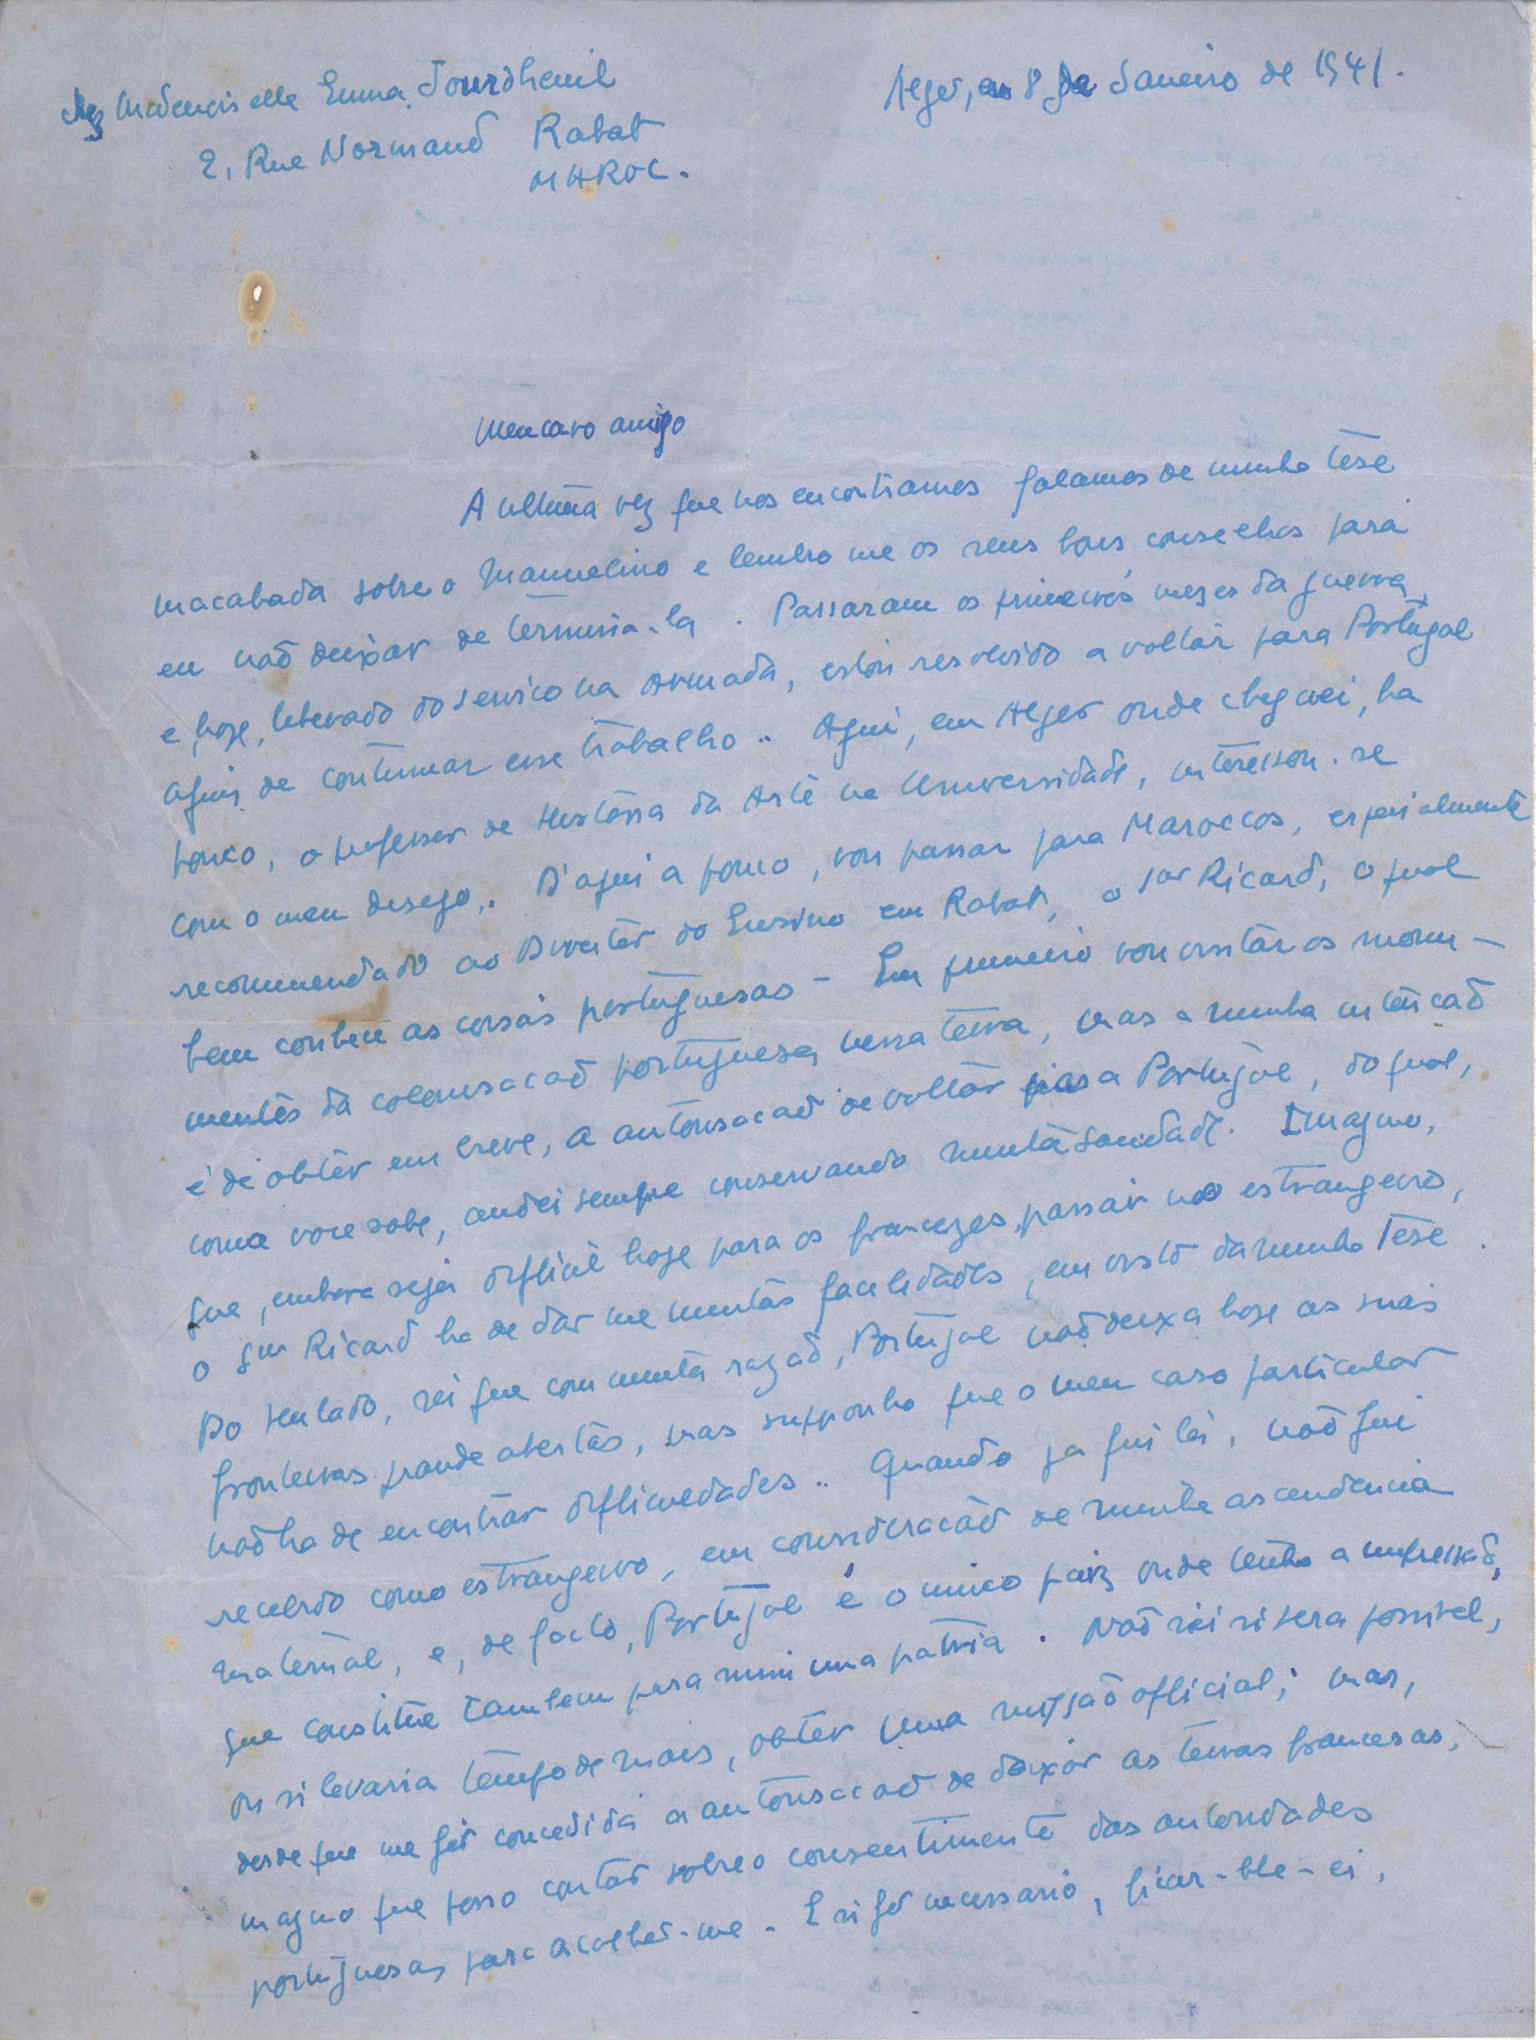 chez Mademoiselle Emma Jourdheuil
Alger, ao 8 de Janeiro de 1941.
2, Rue Normand Rabat
MAROC.
Meu caro amigo
A ultima vez que nos encontramos falamos de minha tese
inacabada sobre o Manuelino e lembro me os seus bons conselhos para
eu naõ deixar de termina-la. Passaram os primeiros mezes da guerra,
e, hoje, liberado do servico na armada, estou resolvido a voltar para Portugal
afim de continuar esse trabalho.. Aqui, em Alger onde cheguei, ha
pouco, o professor de História da Arte na Universidade, interessou-se
com o meu desejo,. D'aqui a pouco, vou passar para Maroccos, especialmente
recommendado ao Director do Ensino em Rabat, o Sor Ricard, o qual
bem conhece as cousas portuguesas - Em primeiro vou visitar os monu-
mentos da colonisacaõ portuguesa, nessa terra, mas a minha intencaõ
é de obter em breve, a autorisacaõ de voltar para Portugal, do qual,
como voce sabe, andei sempre conservando muita saudade. Imagino,
que, embora seja difficil hoje para os francezes, passar no estrangeiro,
o Snr Ricard ha de dar me muitas facilidades, em visto da minha tese.
Do seu lado, sei que com muita razaõ, Portugal naõ deixa hoje as suas
fronteiras grande abertas, mas supponho que o meu caso particular
naõ ha de encontrar difficuldades.. Quando ja fui lá, naõ fui
recebido como estrangeiro, em consideracaõ de minha ascendencia
maternal, e, de facto, Portugal é o unico paiz onde tenho a impressaõ,
que constitue tambem para mim uma patria. Naõ sei si sera possivel,
ou si levaria tempo de mais, obter uma missaõ official; mas,
desde que me fôr concedida a autorisacaõ de deixar as terras francesas,
imagino que posso contar sobre o consentimento das autoridades
portuguesas para acolher-me. E si fôr necessario, ficar-lhe-ei,